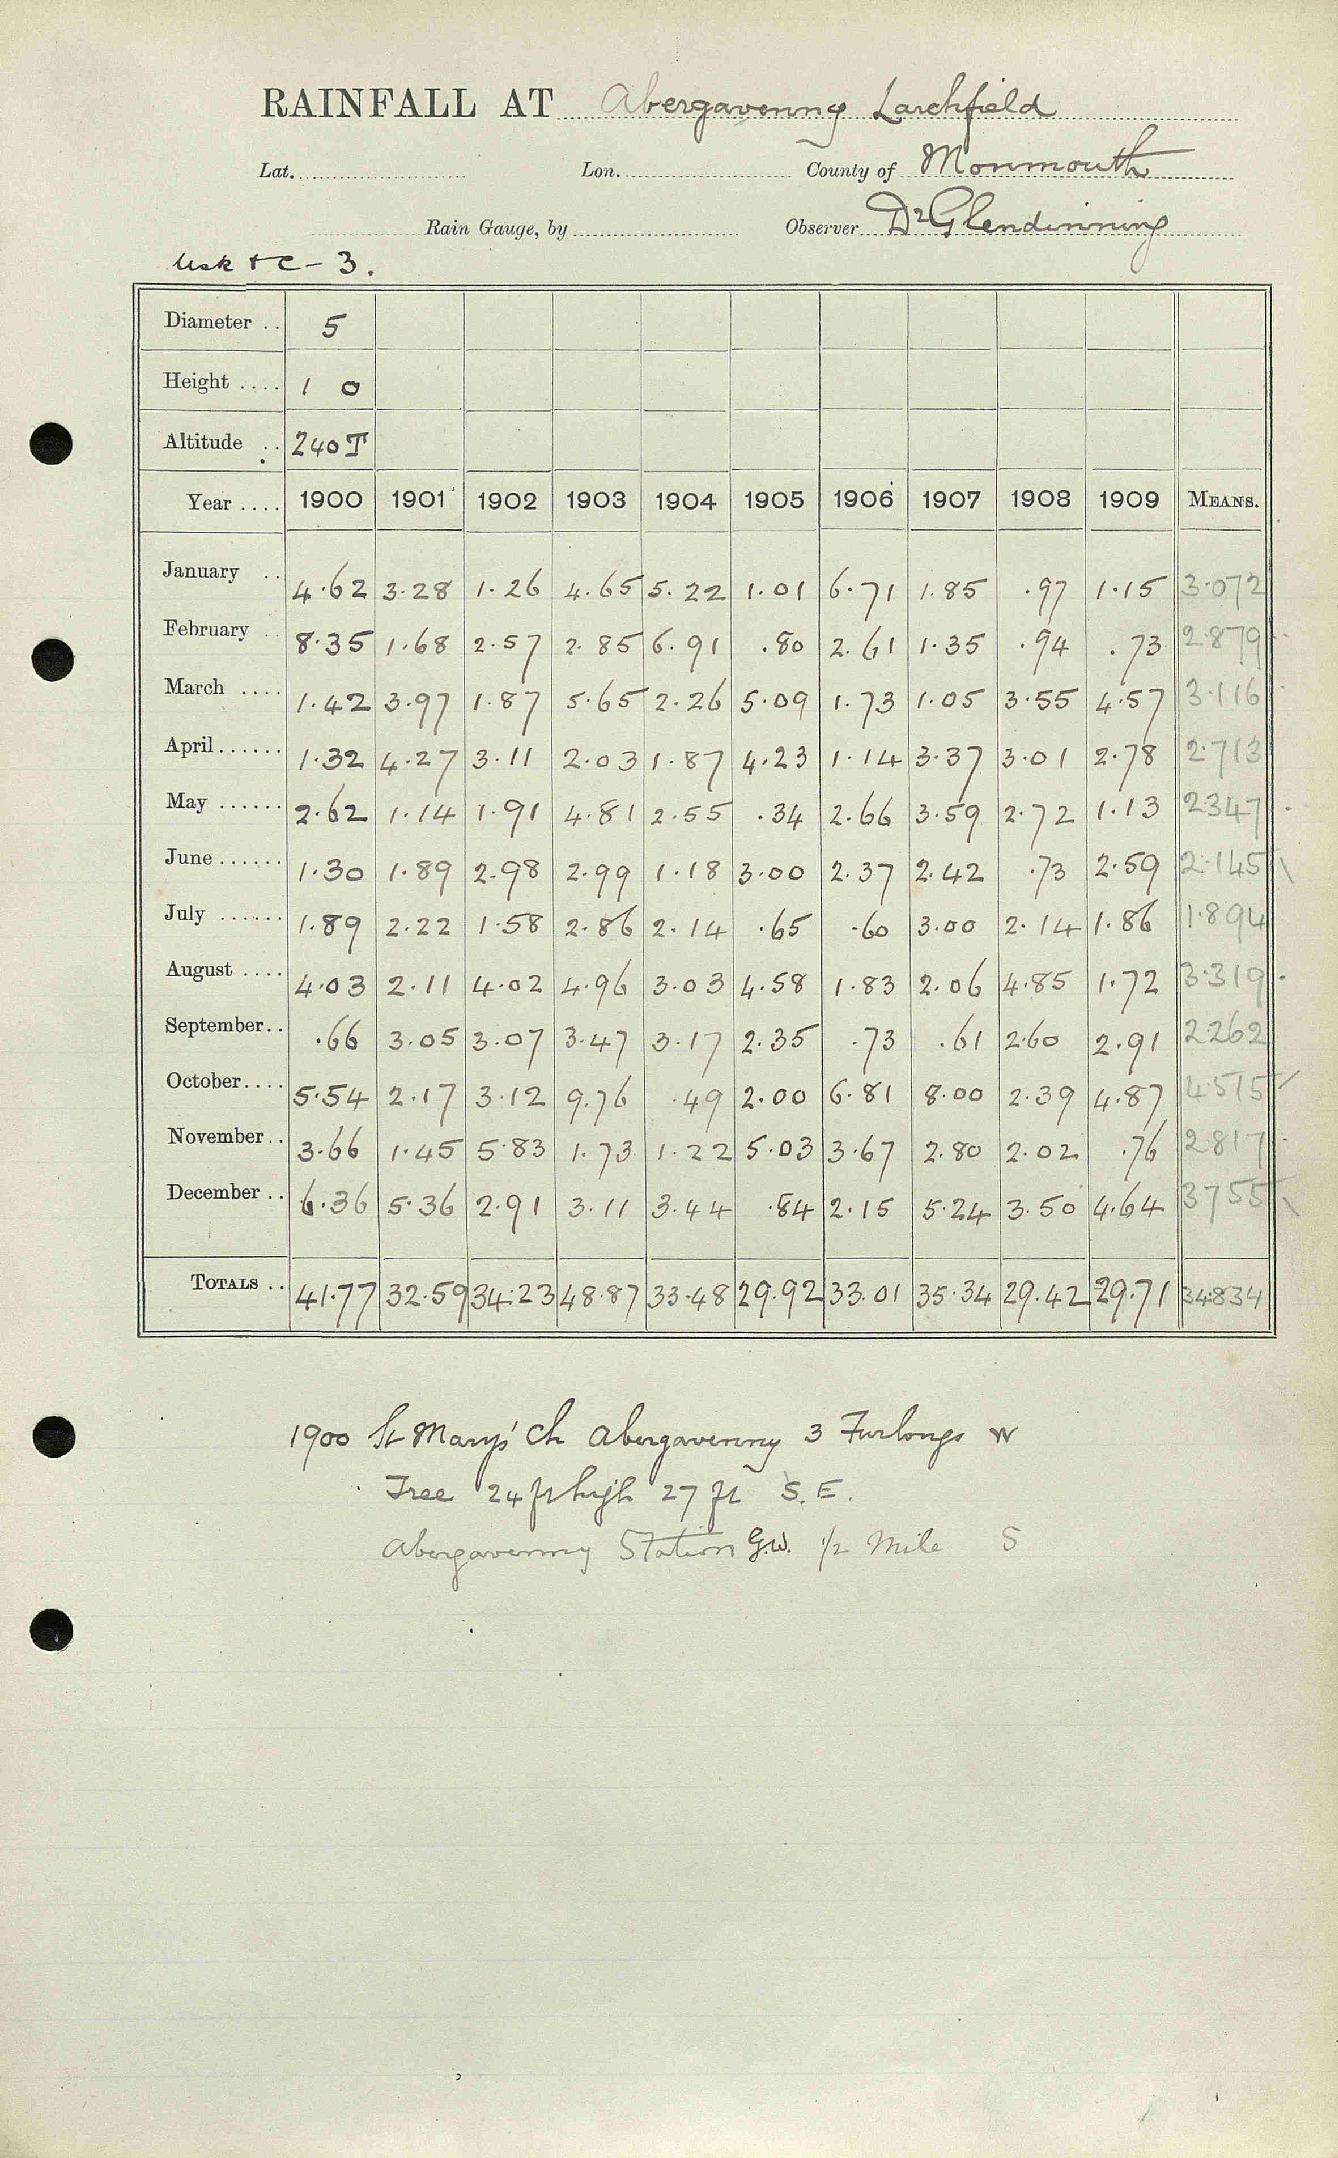 RAINFALL AT Abergavenny Larchfield
Lat. Lon. County of Monmouth
Rain Gauge, by Observer Dr Glendinning
Usk + C - 3.
Diameter .. 5
Height .... 1 0
Altitude .. 240 T
Year .... 1900 1901 1902 1903 1904 1905 1906 1907 1908 1909 MEANS.
January .. 4.62 3.28 1.26 4.65 5.22 1.01 6.71 1.85 .97 1.15 3.072
February .. 8.35 1.68 2.57 2.85 6.91 .80 2.61 1.35 .94 .73 2.879
March .... 1.42 3.97 1.87 5.65 2.26 5.09 1.73 1.05 3.55 4.57 3.116
April ...... 1.32 4.27 3.11 2.03 1.87 4.23 1.14 3.37 3.01 2.78 2.713
May ...... 2.62 1.14 1.91 4.81 2.55 .34 2.66 3.59 2.72 1.13 2347
June ...... 1.30 1.89 2.98 2.99 1.18 3.00 2.37 2.42 .73 2.59 2.145
July ...... 1.89 2.22 1.58 2.86 2.14 .65 .60 3.00 2.14 1.86 1.894
August .... 4.03 2.11 4.02 4.96 3.03 4.58 1.83 2.06 4.85 1.72 3.319
September .. .66 3.05 3.07 3.47 3.17 2.35 .73 .61 2.60 2.91 2262
October .... 5.54 2.17 3.12 9.76 .49 2.00 6.81 8.00 2.39 4.87 4.515
November .. 3.66 1.45 5.83 1.73 1.22 5.03 3.67 2.80 2.02 .76 2.817
December .. 6.36 5.36 2.91 3.11 3.44 .84 2.15 5.24 3.50 4.64 3755
TOTALS .. 41.77 32.59 34.23 48.87 33.48 29.92 33.01 35.34 29.42 29.71 34834
1900 St Mary's Ch Abergavenny 3 Furlongs W
Tree 24 ft high 27 ft S.E.
Abergavenny Station G.W. 1/2 Mile S